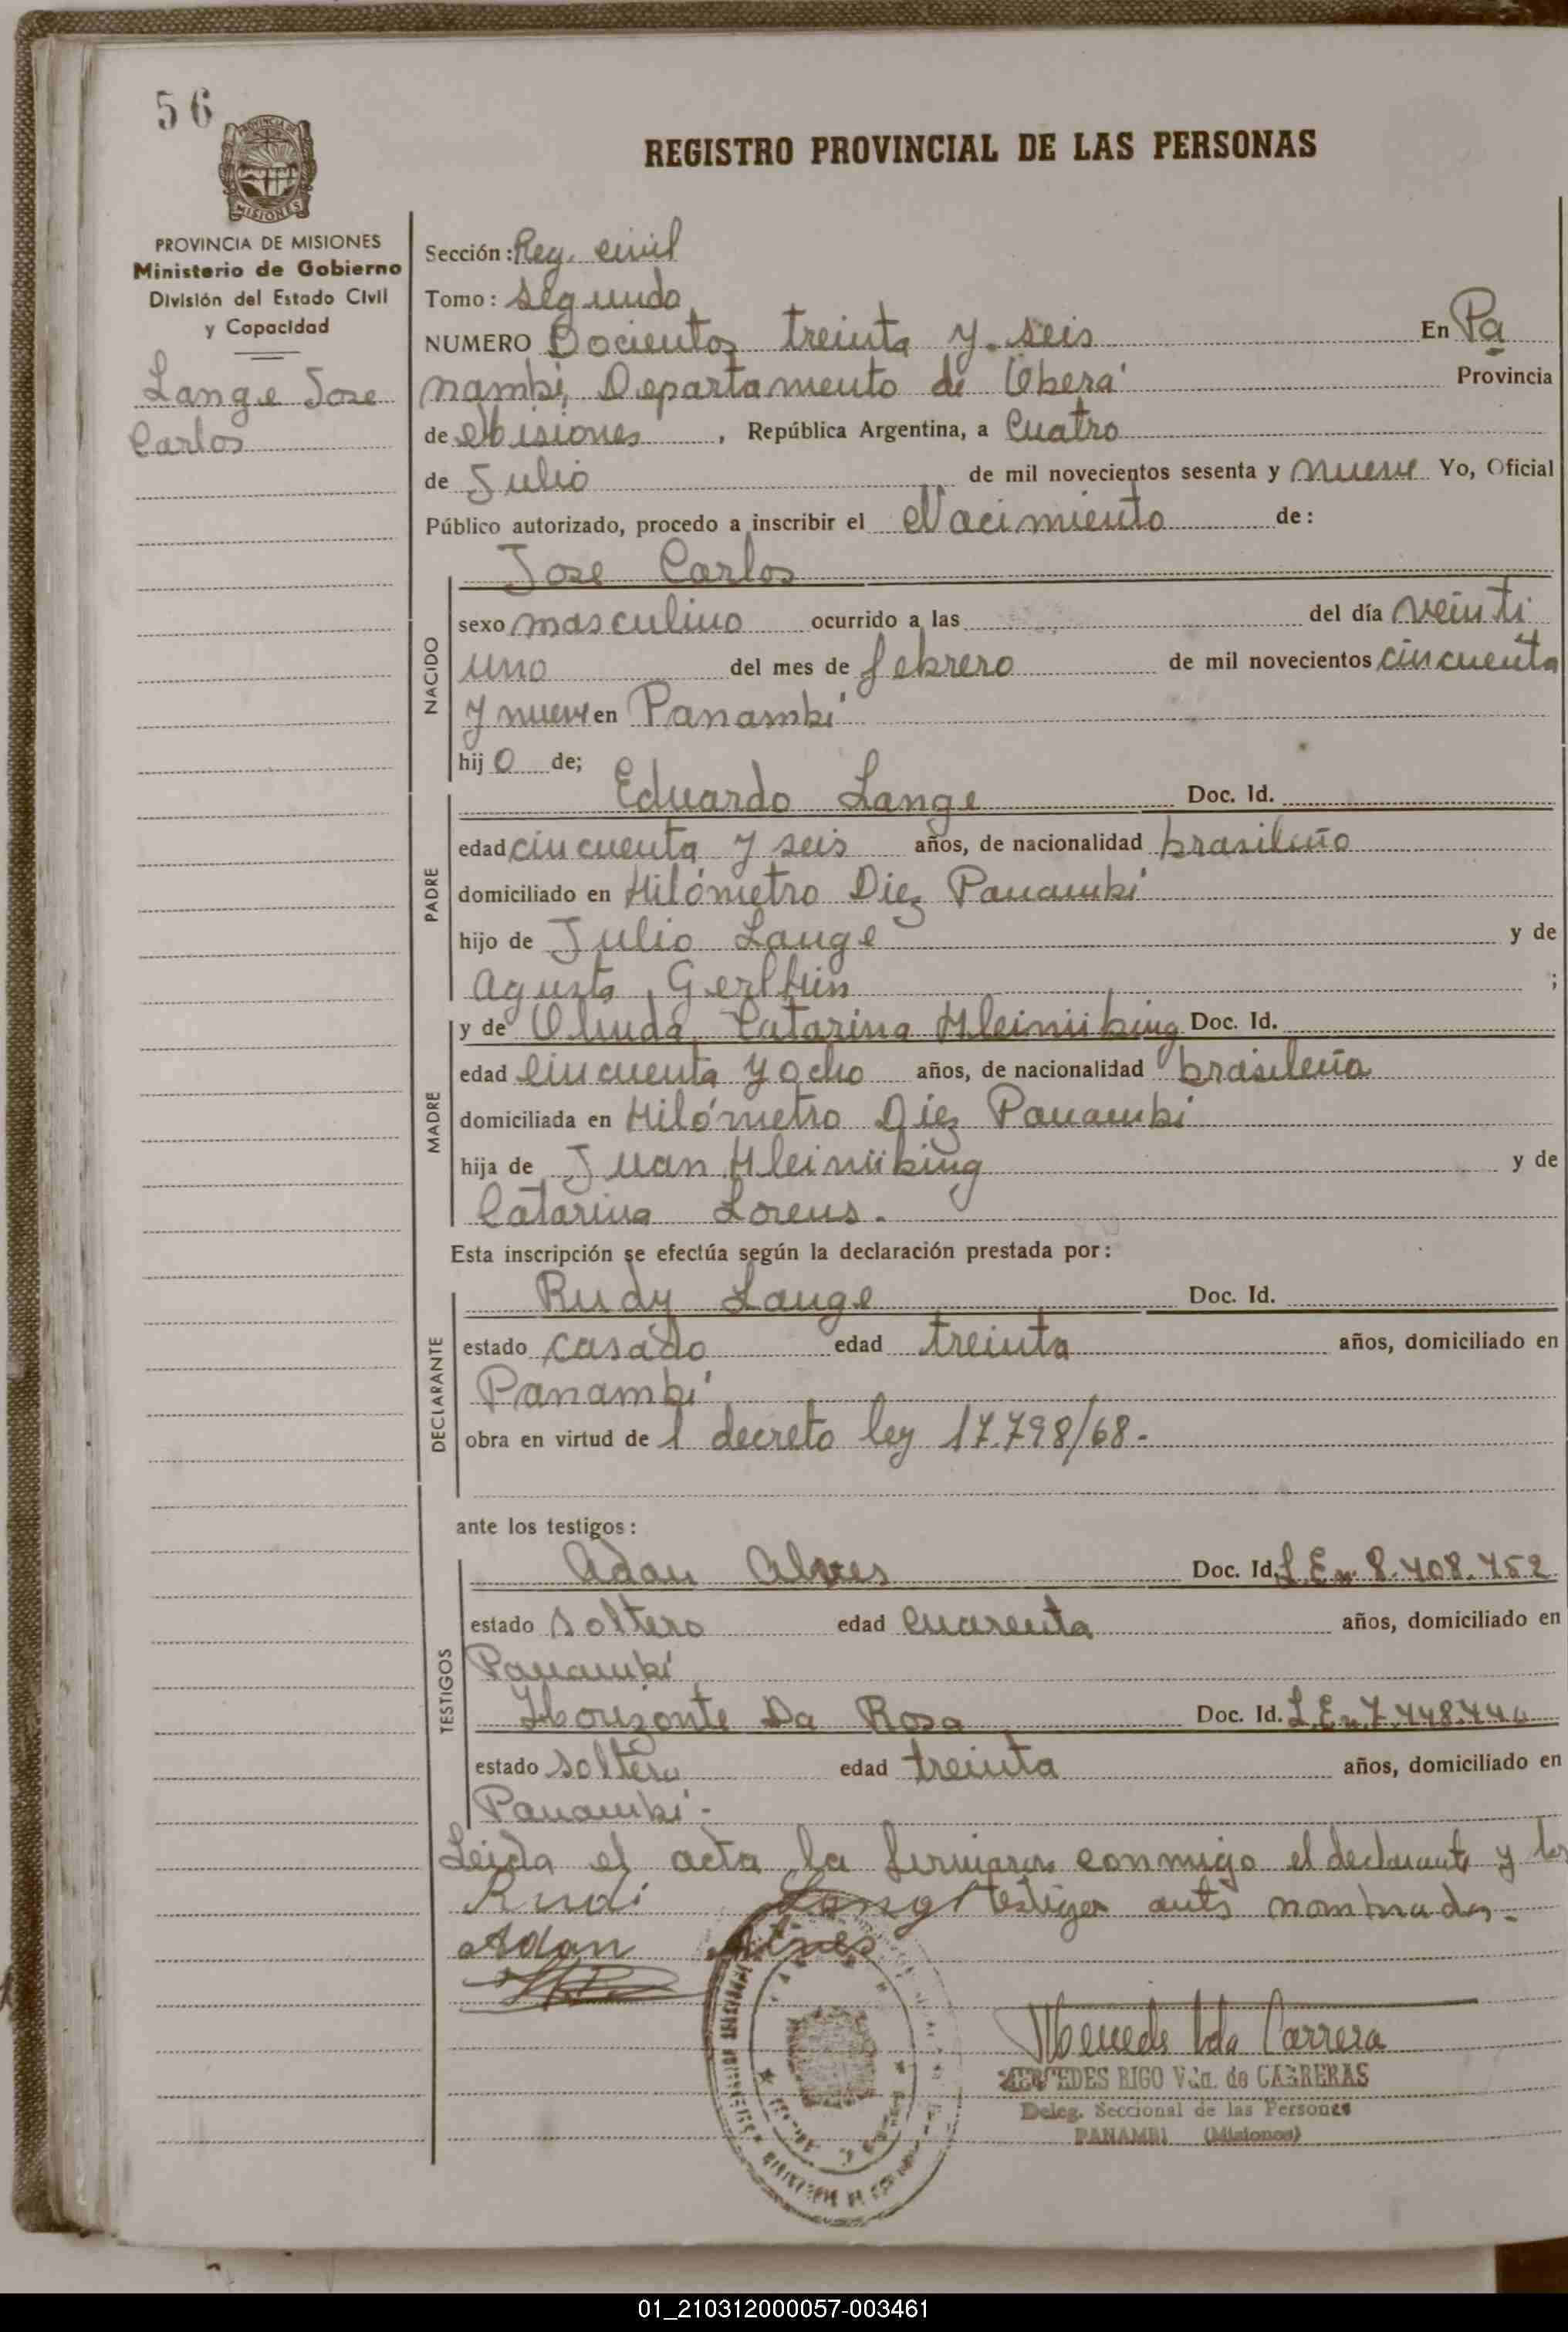 56
REGISTRO PROVINCIAL DE LAS PERSONAS
PROVINCIA DE MISIONES
Ministerio de Gobierno
División del Estado Civil
y Capacidad
Lange Jose
Carlos
Sección: Reg. civil
Tomo: Segundo
NUMERO Docientos treinta y seis En Pa
nambí, Departamento de Oberá Provincia
de Misiones, República Argentina, a Cuatro
de Julio de mil novecientos sesenta y nueve Yo, Oficial
Público autorizado, procedo a inscribir el Nacimiento de:
Jose Carlos
NACIDO
sexo masculino ocurrido a las del día veinti
uno del mes de febrero de mil novecientos cincuenta
y nueve en Panambí
hijo de;
PADRE
Eduardo Lange Doc. Id.
edad cincuenta y seis años, de nacionalidad brasileño
domiciliado en Kilómetro Diez Panambí
hijo de Julio Lange y de
Agusta ;
MADRE
y de Olinda Catarina Doc. Id.
edad cincuenta y ocho años, de nacionalidad brasileña
domiciliada en Kilómetro Diez Panambí
hija de Juan y de
Catarina Lorens.
Esta inscripción se efectúa según la declaración prestada por:
DECLARANTE
Rudy Lange Doc. Id.
estado casado edad treinta años, domiciliado en
Panambí
obra en virtud de l decreto ley 17.798/68.
ante los testigos:
TESTIGOS
Adan Alves Doc. Id. L.E.n. 8.408.752
estado soltero edad cuarenta años, domiciliado en
Panambí
Horizonte Da Rosa Doc. Id. L.E.n.
estado soltero edad treinta años, domiciliado en
Panambí.
Leida el acta la firmaron conmigo el declarante y los
Rudi Lange testigos antes nombrados.
Adan Alves
Mercedes Vda Carrera
MERCEDES RIGO Vda. de CARRERAS
Deleg. Seccional de las Personas
PANAMBI (Misiones)
01_210312000057-003461